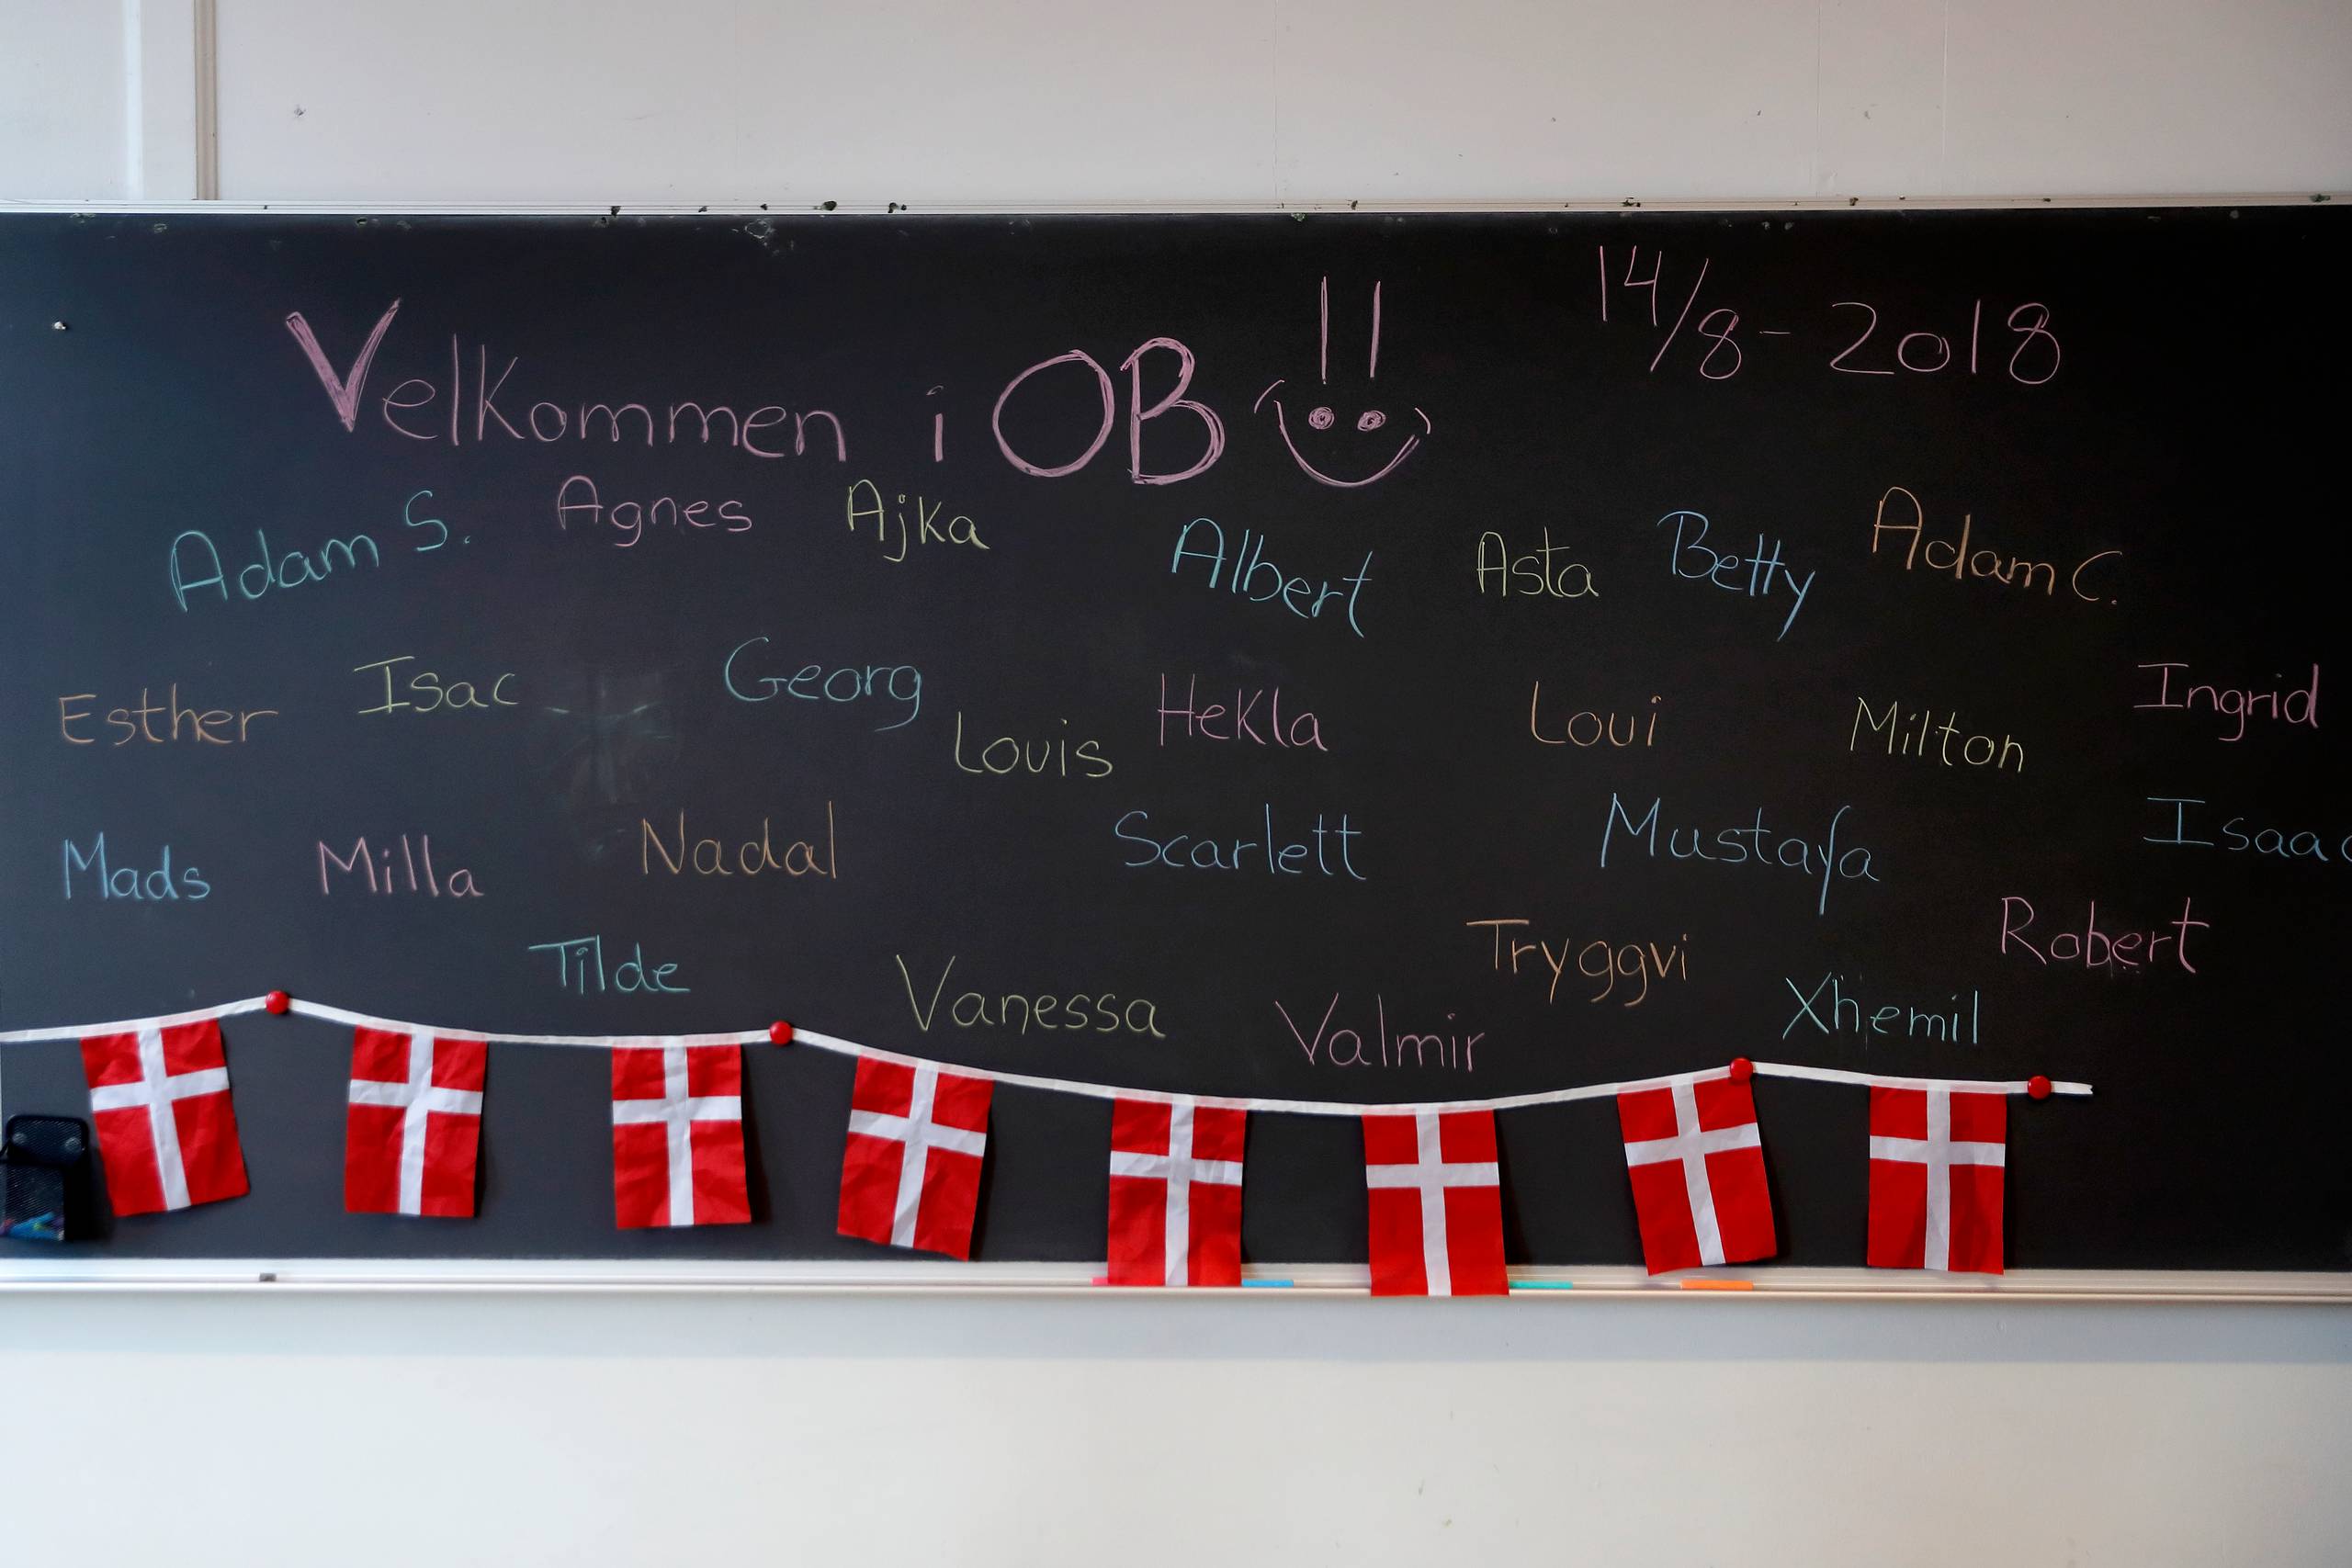 14/8-2018
Velkommen i OB!!
Adam S. Agnes Ajka Albert Asta Betty Adam C.
Esther Isac Georg Louis Hekla Loui Milton Ingrid
Mads Milla Nadal Scarlett Mustafa Isaac
Tilde Vanessa Valmir Tryggvi Xhemil Robert